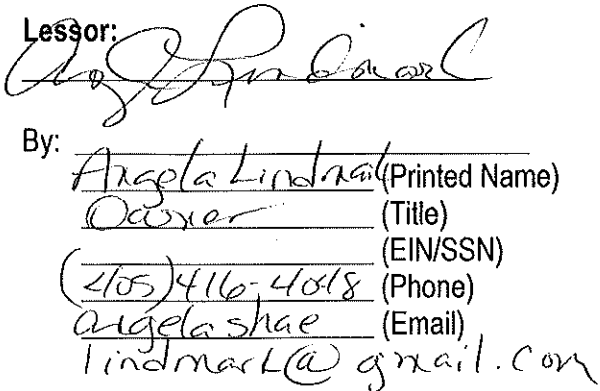 Lessor:
Ang Lindmark
By:
Angela Lindmark (Printed Name)
Owner (Title)
(EIN/SSN)
(405) 416-4048 (Phone)
angelashae (Email)
lindmark@gmail.com